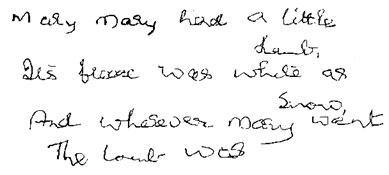 Mary Mary had a little
Lamb,
Its fleece was white as
Snow,
And wherever Mary went
The Lamb was